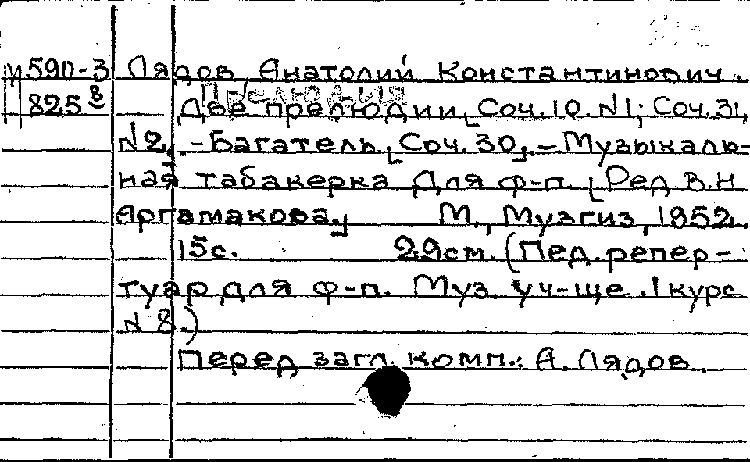 И590-3 Лядов, Анатолий Константинович.
825в Прелюдия
Две прелюдии, [Соч. 10. №1; Соч. 31,
№2]. - Багатель, [Соч. 30]. - Музыкаль-
ная табакерка для ф-п. [Ред В.Н
Аргамакова.] М., Музгиз, 1952.
15с. 29см. (Пед. репер-
туар для ф-п. Муз. уч-ще. I курс
№ 8.)
Перед загл. комп.: А. Лядов.